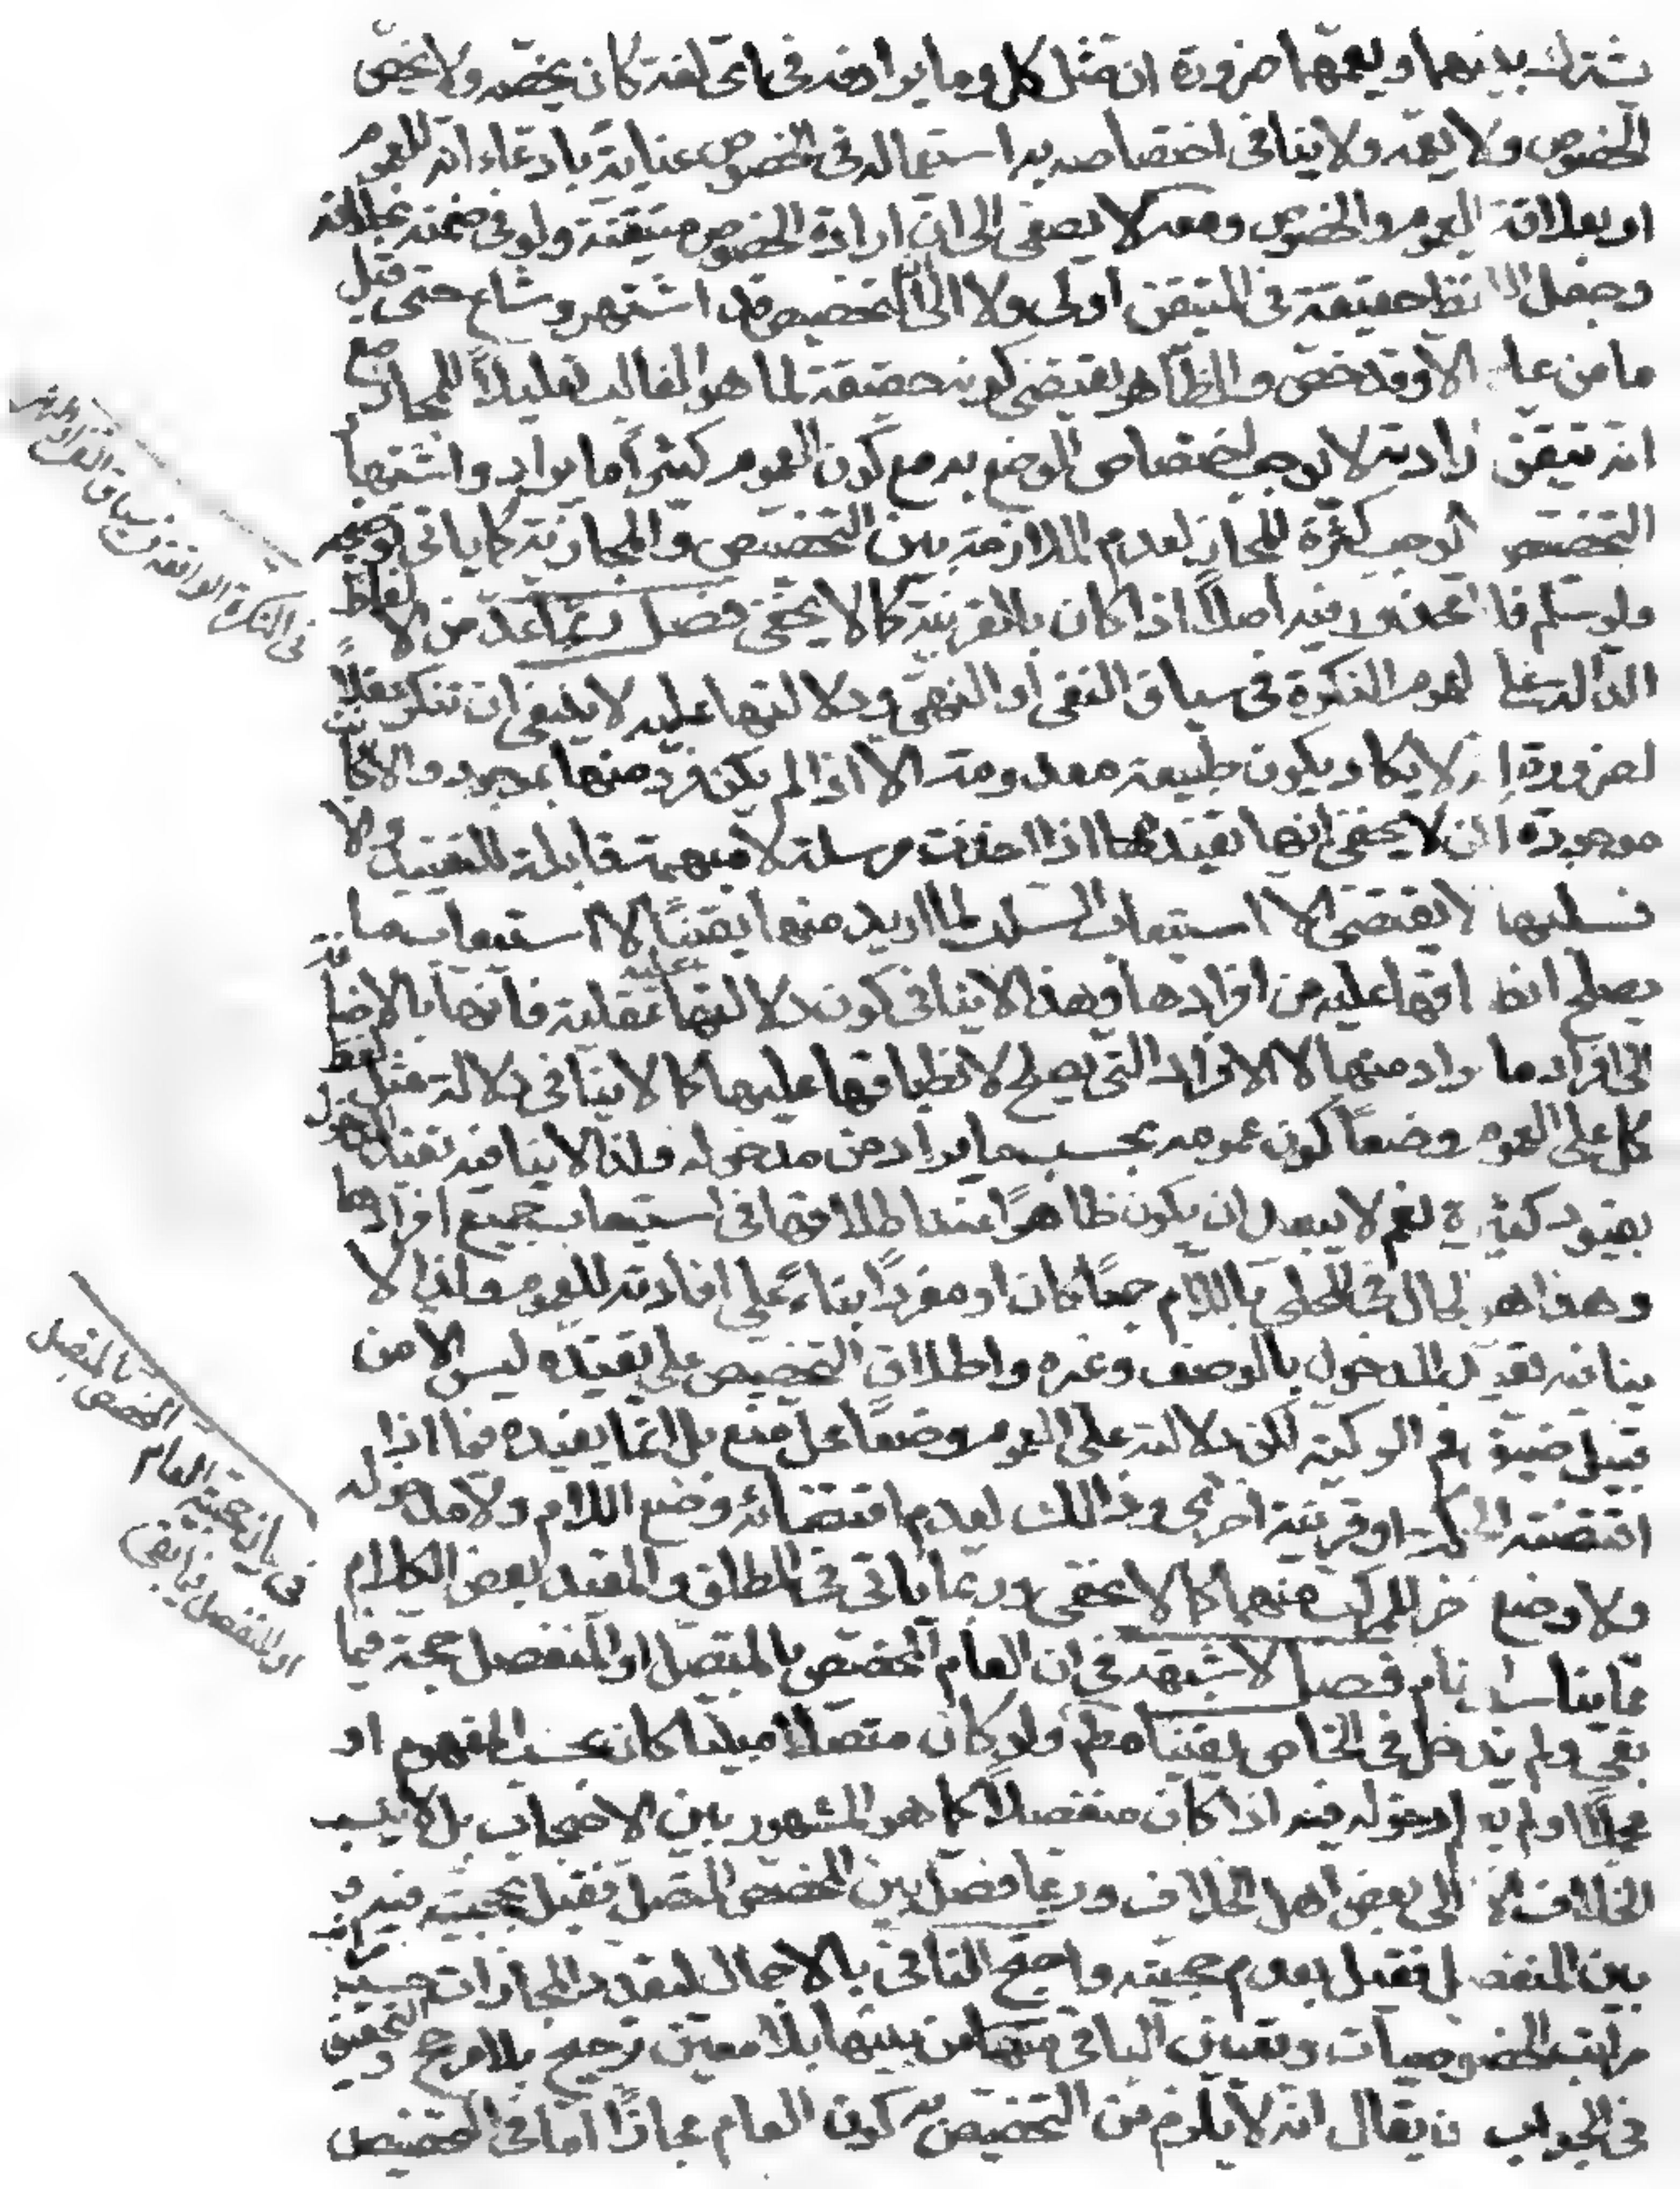 يشترك بينهما ويعمهما ضرورة ان مثل كل وما يرادفه في اى لغة كان يخصه ولا يخص
الخصوص ولا يعمه ولا ينافى اختصاصه به استعماله فى الخصوص عناية بادعاء انه العموم
او بعلاقة العموم والخصوص ومعه لا يصغى الى ان ارادة الخصوص متيقنة ولو فى ضمنه بخلافه
وجعل اللفظ حقيقة فى المتيقن اولى ولا الى ان التخصيص قد اشتهر وشاع حتى قيل
ما من عام الا وقد خص والظاهر يقتضى كونه حقيقة لما هو الغالب تقليلاً للمجاز مع
ان تيقن ارادته لا يوجب اختصاص الوضع به مع كون العموم كثيراً ما يراد واشتهار
التخصيص لا يوجب كثرة المجاز لعدم الملازمة بين التخصيص والمجازية كما ياتى توضيحه
ولو سلم فلا محذور فيه اصلاً اذا كان بالقرينة كما لا يخفى فصل ربما عد من الالفاظ
الدالة على العموم النكرة فى سياق النفى او النهى ودلالتها عليه لا ينبغى ان تنكر عقلاً
لضرورة انه لا يكاد يكون طبيعة معدومة الا اذا لم يكن فرد منها بموجود والا كانت
موجودة لكن لا يخفى انها تفيده اذا اخذت مرسلة لا مبهمة قابلة للتقييد والا
فسلبها لا يقتضى الا استيعاب السلب لما اريد منها يقيناً لا استيعاب ما
يصلح انطباقها عليه من افرادها وهذا لا ينافى كون دلالتها عليه عقلية فانها بالاضافة
الى افراد ما يراد منها لا الافراد التى يصلح لانطباقها عليها كما لا ينافى دلالة مثل لفظ
كل على العموم وضعاً كون عمومه بحسب ما يراد من مدخوله ولذا لا ينافيه تقييد المدخول
بقيود كثيرة نعم لا يبعد ان يكون ظاهراً عند اطلاقها فى استيعاب جميع افرادها
وهذا هو الحال فى المحلى باللام جمعاً كان او مفرداً بناء على افادته للعموم ولذا لا
ينافيه تقييد المدخول بالوصف وغيره واطلاق التخصيص على تقييده ليس الا من
قبيل ضيق فم الركية لكن دلالته على العموم وضعاً محل منع بل انما يفيده فيما اذا
اقتضته الحكمة او قرينة اخرى وذالك لعدم اقتضائه وضع اللام ولا مدخوله
ولا وضع اخر للمركب منهما كما لا يخفى وربما ياتى فى المطلق والمقيد بعض الكلام
مما يناسب المقام فصل لا شبهة فى ان العام المخصص بالمتصل او المنفصل حجة فيما
بقى ولم يدخل فى الخاص يقيناً مطلقا ولو كان متصلا مبينا كان بحسب المفهوم او
مجملا او لم يعلم دخوله فيه اذا كان منفصلاً كما هو المشهور بين الاصحاب بل لا ينسب
الخلاف الا الى بعض اهل الخلاف وربما فصل بين المخصص المتصل فقيل بحجيته فيه و
بين المنفصل فقيل بعدم حجيته واحتج النافى بالاجمال لتعدد المجازات حسب
مراتب الخصوصيات وتعيين الباقى منها من بينها بلا معين ترجيح بلا مرجح والتحقيق
فى الجواب ان يقال انه لا يلزم من التخصيص كون العام مجازاً اما فى التخصيص
فى النكرة الواقعة فى سياق النفى او النهى
فى بيان حجية العام المخصص بالمتصل
او المنفصل فيما بقى